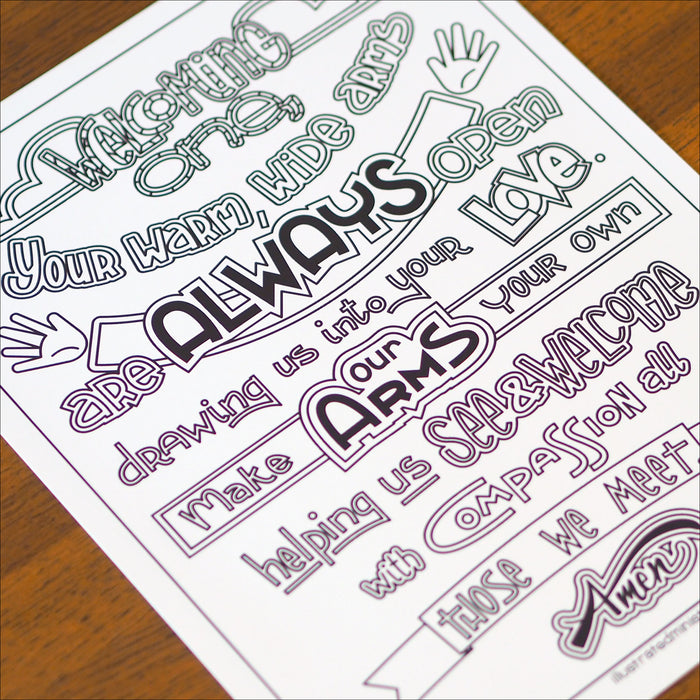 WELCOMING
one,
YOUR WARM, WIDE ARMS
are ALWAYS OPEN
drawing us into your LOVE.
Make our ARMS YOUR OWN
helping us See & WELCOME
with COMPASSION all
THOSE WE MEET.
Amen